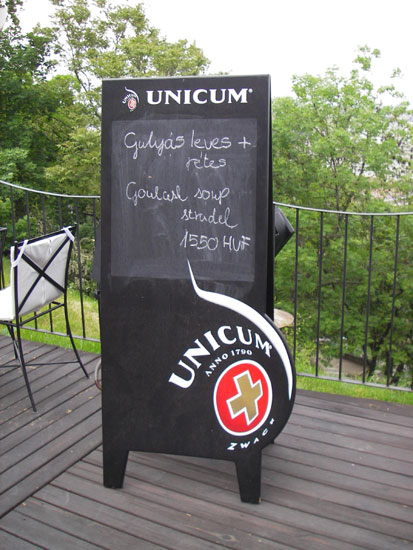 UNICUM®
Gulyás leves +
rétes
Goulash soup
strudel
1550 HUF
UNICUM®
ANNO 1790
ZWACK